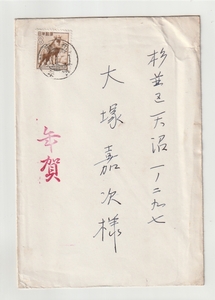 杉並区天沼一ノ二九七
大塚嘉次様
年賀
日本郵便